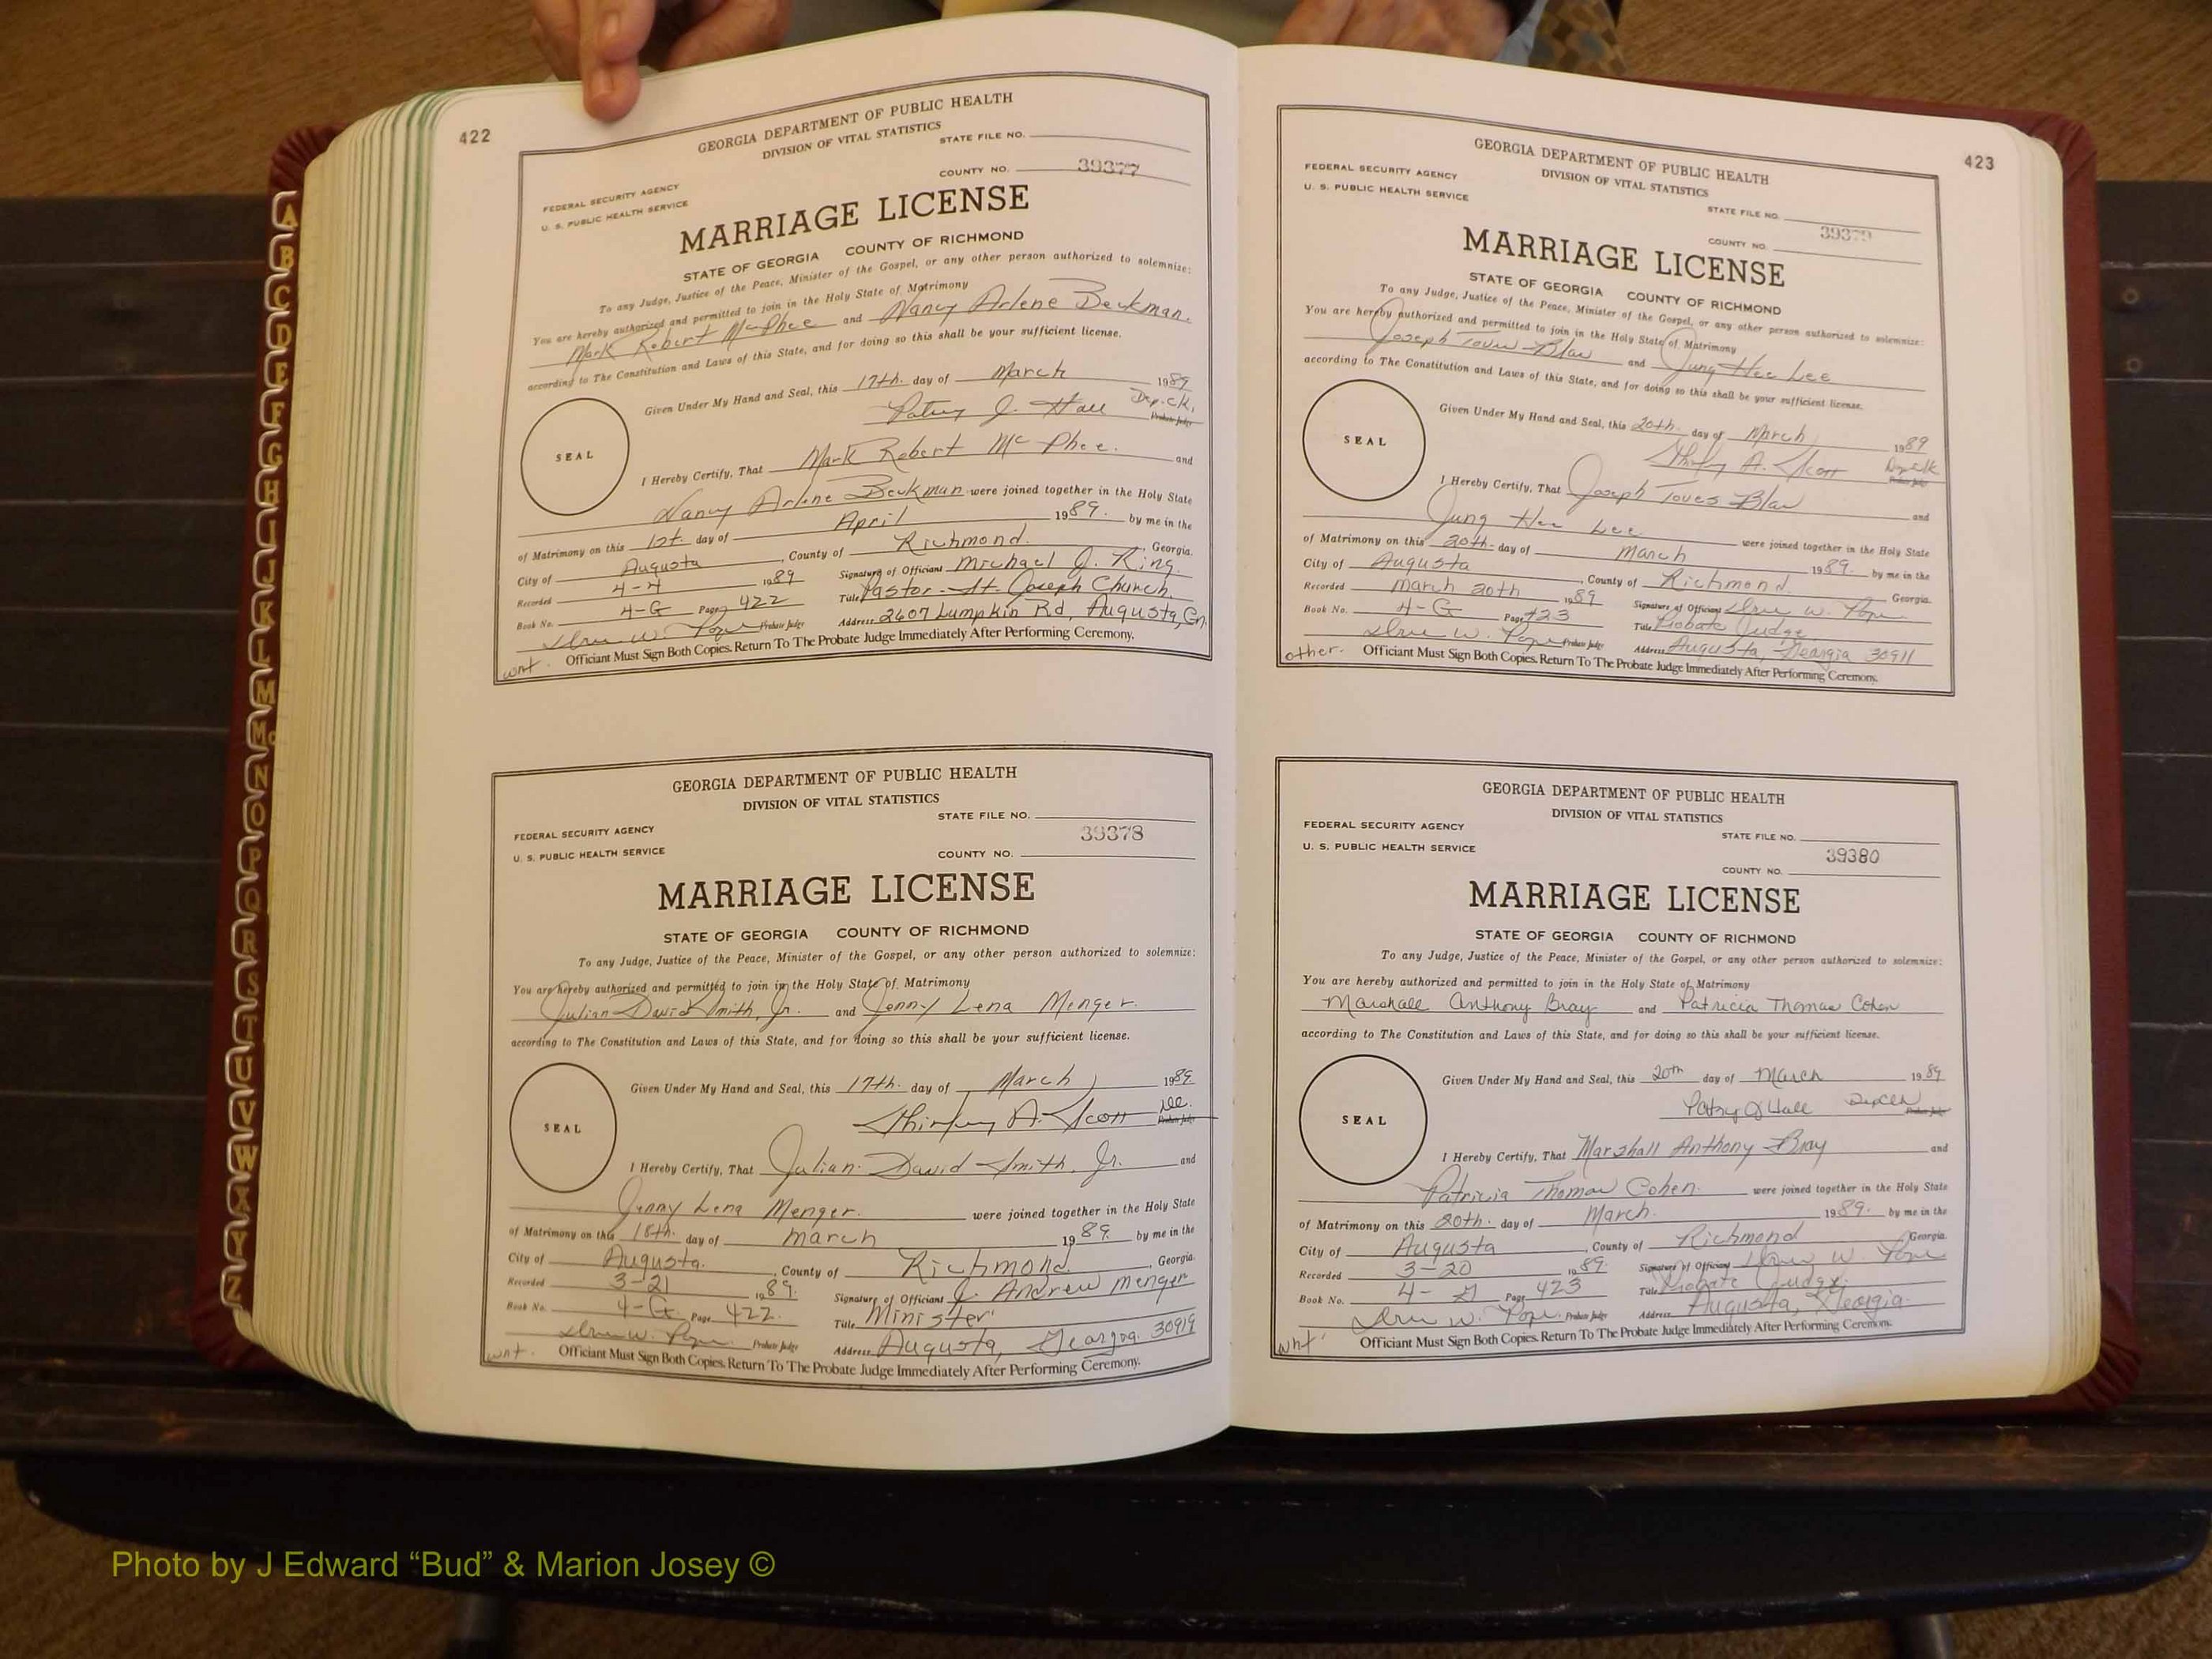 422
GEORGIA DEPARTMENT OF PUBLIC HEALTH
DIVISION OF VITAL STATISTICS
STATE FILE NO.
COUNTY NO. 39377
FEDERAL SECURITY AGENCY
U. S. PUBLIC HEALTH SERVICE
MARRIAGE LICENSE
STATE OF GEORGIA COUNTY OF RICHMOND
To any Judge, Justice of the Peace, Minister of the Gospel, or any other person authorized to solemnize:
You are hereby authorized and permitted to join in the Holy State of Matrimony
Mark Robert McPhee and Nancy Arlene Beckman.
according to The Constitution and Laws of this State, and for doing so this shall be your sufficient license.
Given Under My Hand and Seal, this 17th. day of March 1989
Patsy J. Hall Dep. Ck,
Probate Judge
SEAL
I Hereby Certify, That Mark Robert McPhee. and
Nancy Arlene Beckman were joined together in the Holy State
of Matrimony on this 1st. day of April 1989. by me in the
City of Augusta, County of Richmond, Georgia.
Recorded 4-4 1989 Signature of Officiant Michael J. King.
Book No. 4-G Page 422 Title Pastor - St. Joseph Church
Probate Judge Address 2607 Lumpkin Rd, Augusta, Ga.
wht. Officiant Must Sign Both Copies. Return To The Probate Judge Immediately After Performing Ceremony.
GEORGIA DEPARTMENT OF PUBLIC HEALTH
DIVISION OF VITAL STATISTICS
STATE FILE NO.
FEDERAL SECURITY AGENCY 39378
U. S. PUBLIC HEALTH SERVICE COUNTY NO.
MARRIAGE LICENSE
STATE OF GEORGIA COUNTY OF RICHMOND
To any Judge, Justice of the Peace, Minister of the Gospel, or any other person authorized to solemnize:
You are hereby authorized and permitted to join in the Holy State of Matrimony
Julian David Smith, Jr. and Jenny Lena Menger.
according to The Constitution and Laws of this State, and for doing so this shall be your sufficient license.
Given Under My Hand and Seal, this 17th. day of March 1989
Shirley A. Scott
Probate Judge
SEAL
I Hereby Certify, That Julian David Smith, Jr. and
Jenny Lena Menger. were joined together in the Holy State
of Matrimony on this 18th. day of March 1989. by me in the
City of Augusta., County of Richmond, Georgia.
Recorded 3-21 1989. Signature of Officiant J. Andrew Menger
Book No. 4-G. Page 422. Title Minister
Probate Judge Address Augusta, Georgia 30919
wht. Officiant Must Sign Both Copies. Return To The Probate Judge Immediately After Performing Ceremony.
423
GEORGIA DEPARTMENT OF PUBLIC HEALTH
DIVISION OF VITAL STATISTICS
FEDERAL SECURITY AGENCY
U. S. PUBLIC HEALTH SERVICE
STATE FILE NO.
39379
COUNTY NO.
MARRIAGE LICENSE
STATE OF GEORGIA COUNTY OF RICHMOND
To any Judge, Justice of the Peace, Minister of the Gospel, or any other person authorized to solemnize:
You are hereby authorized and permitted to join in the Holy State of Matrimony
Joseph Toves Blas and Jung Hee Lee
according to The Constitution and Laws of this State, and for doing so this shall be your sufficient license.
Given Under My Hand and Seal, this 20th. day of March 1989
Shirley A. Scott
Probate Judge
SEAL
I Hereby Certify, That Joseph Toves Blas and
Jung Hee Lee were joined together in the Holy State
of Matrimony on this 20th. day of March 1989. by me in the
City of Augusta, County of Richmond, Georgia.
Recorded March 20th 1989 Signature of Officiant W. Pope
Book No. 4-G Page 423 Title Probate Judge
W. Pope Probate Judge Address Augusta, Georgia 30911
other. Officiant Must Sign Both Copies. Return To The Probate Judge Immediately After Performing Ceremony.
GEORGIA DEPARTMENT OF PUBLIC HEALTH
DIVISION OF VITAL STATISTICS
FEDERAL SECURITY AGENCY STATE FILE NO.
U. S. PUBLIC HEALTH SERVICE 39380
COUNTY NO.
MARRIAGE LICENSE
STATE OF GEORGIA COUNTY OF RICHMOND
To any Judge, Justice of the Peace, Minister of the Gospel, or any other person authorized to solemnize:
You are hereby authorized and permitted to join in the Holy State of Matrimony
Marshall Anthony Bray and Patricia Thomas Cohen
according to The Constitution and Laws of this State, and for doing so this shall be your sufficient license.
Given Under My Hand and Seal, this 20th day of March 1989
Patsy J Hall
Probate Judge
SEAL
I Hereby Certify, That Marshall Anthony Bray and
Patricia Thomas Cohen. were joined together in the Holy State
of Matrimony on this 20th. day of March. 1989. by me in the
City of Augusta, County of Richmond, Georgia.
Recorded 3-20 1989. Signature of Officiant W. Pope
Book No. 4-G Page 423 Title Probate Judge.
W. Pope Probate Judge Address Augusta, Georgia.
wht Officiant Must Sign Both Copies. Return To The Probate Judge Immediately After Performing Ceremony.
A
B
C
D
E
F
G
H
I
J
K
L
M
Mc
N
O
P
Q
R
S
T
U
V
W
X
Y
Z
Photo by J Edward “Bud” & Marion Josey ©